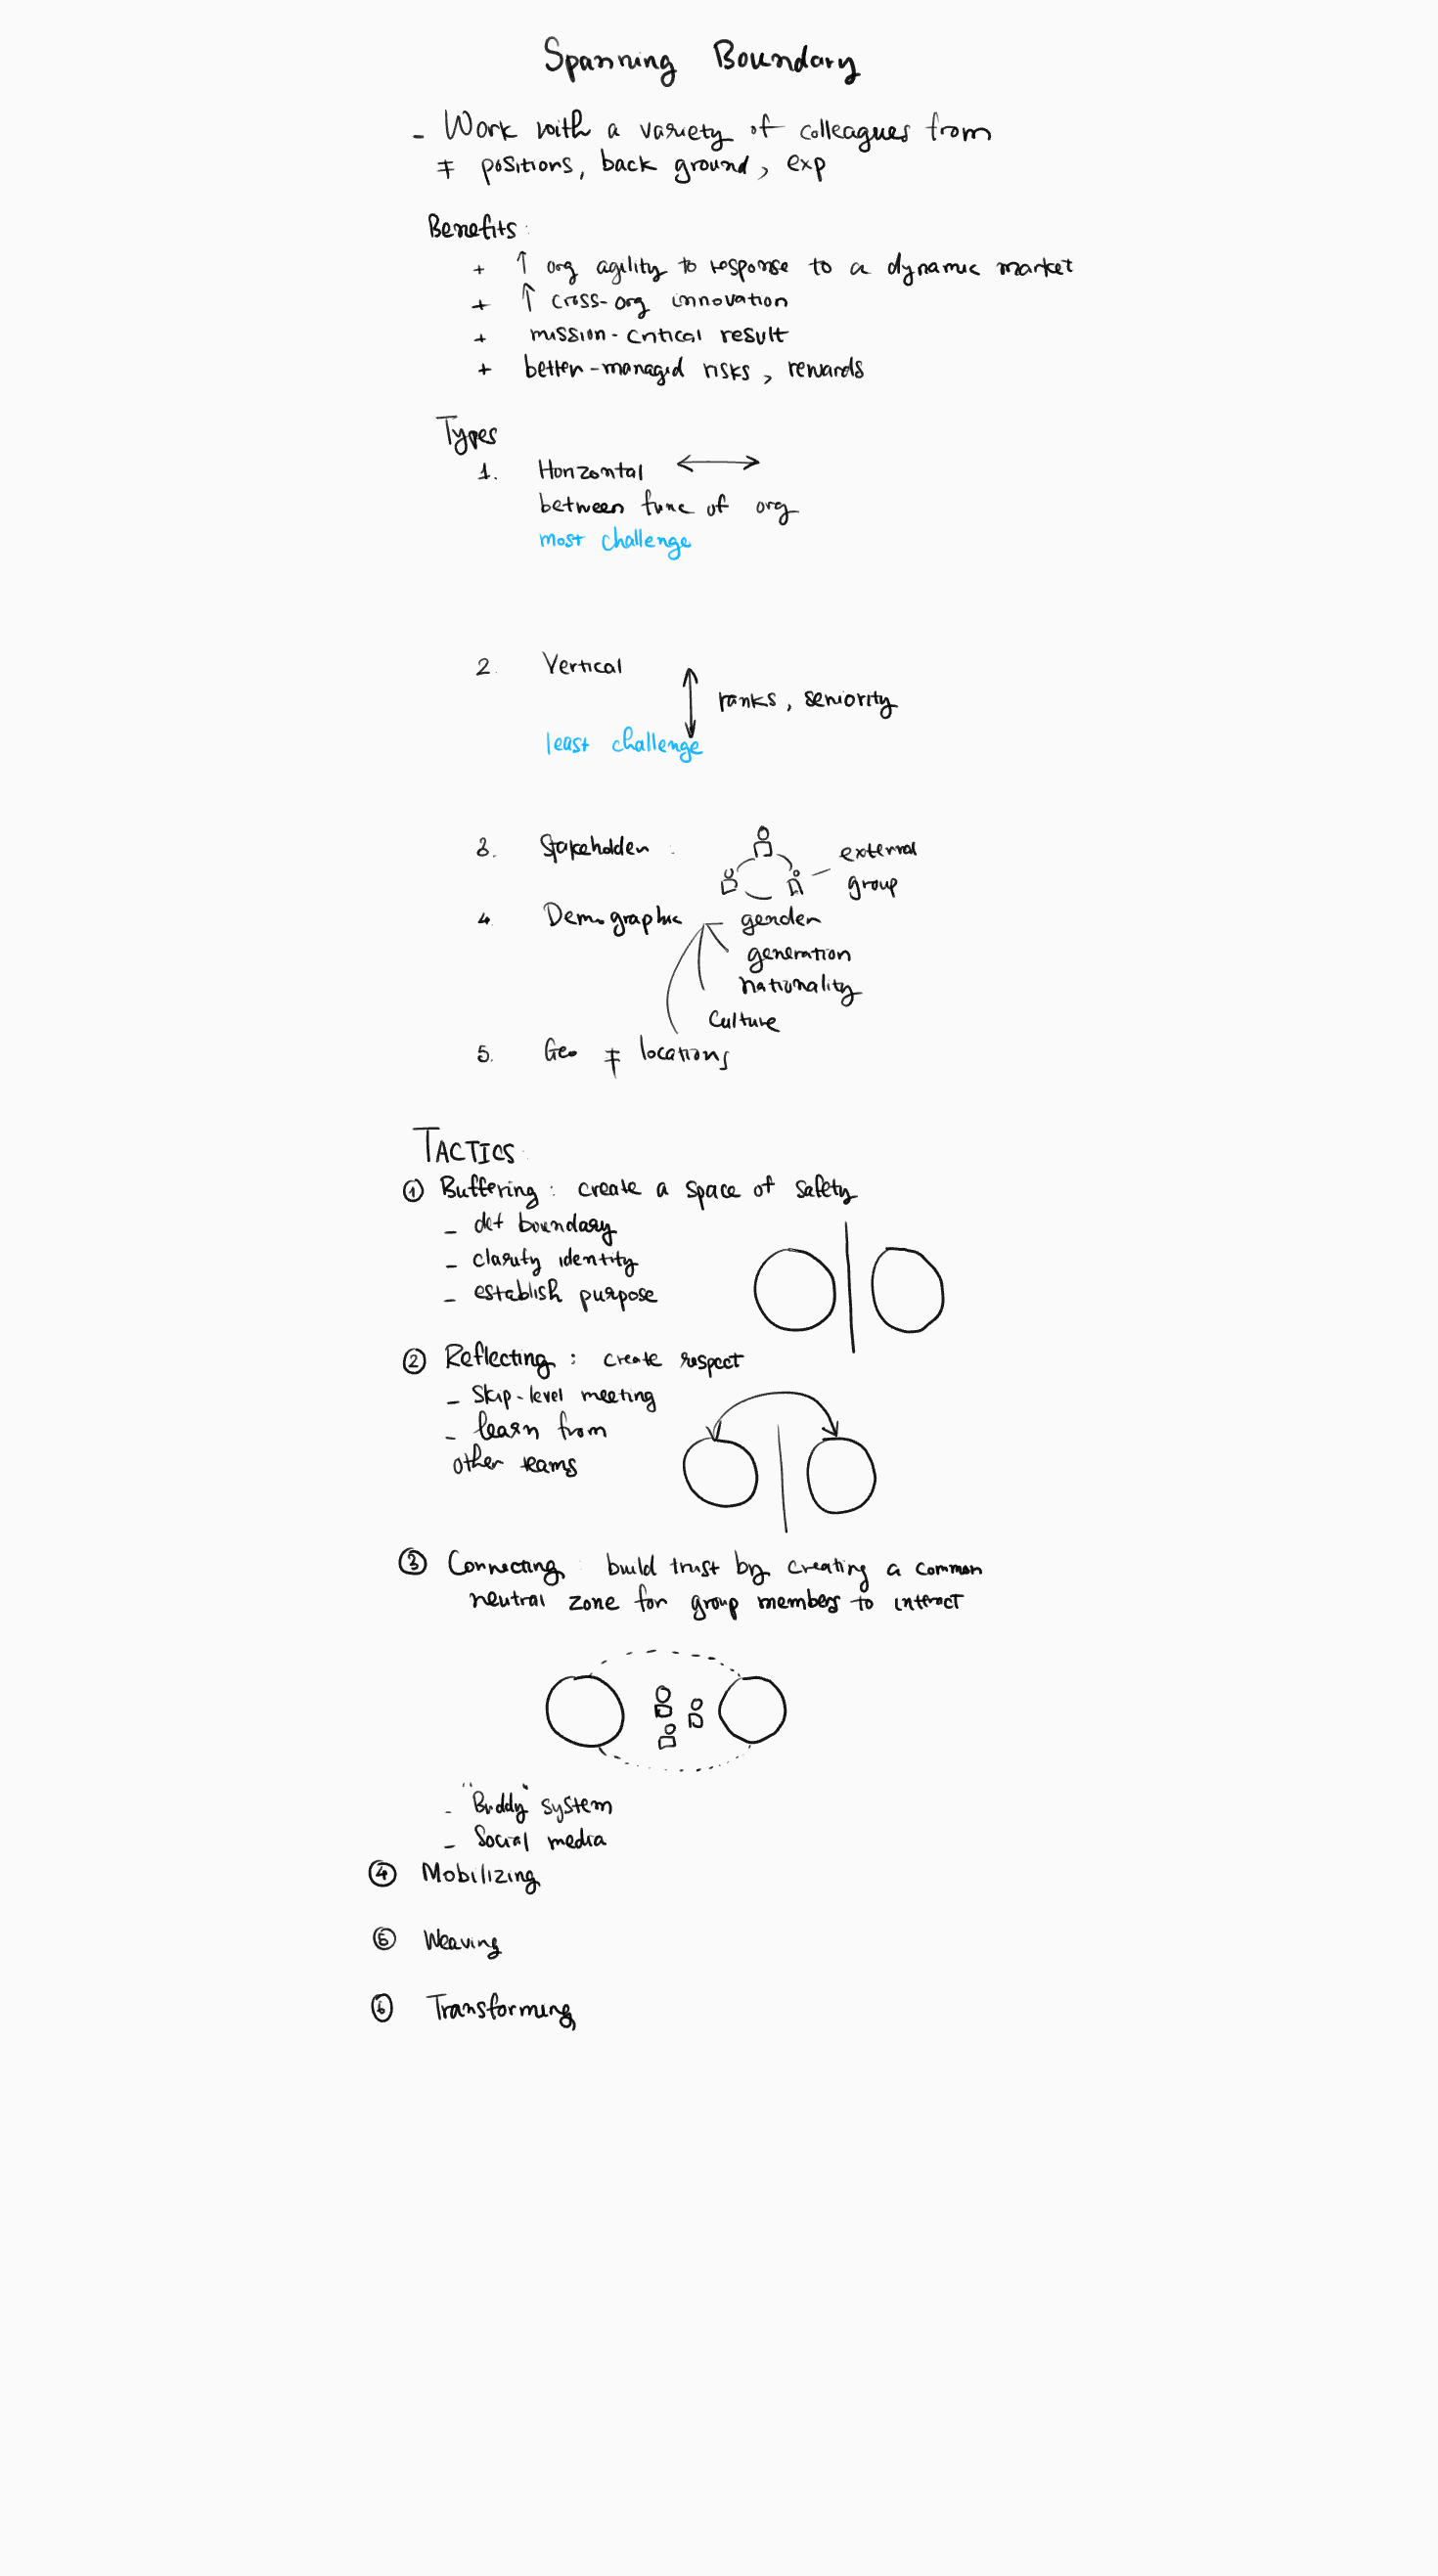 Spanning Boundary
- Work with a variety of colleagues from
≠ positions, back ground, exp
Benefits:
+ ↑ org agility to response to a dynamic market
+ ↑ cross-org innovation
+ mission-critical result
+ better-managed risks, rewards
Types
1. Horizontal ↔
between func of org
most challenge
2. Vertical
↕ ranks, seniority
least challenge
3. Stakeholder :
external
group
4. Demographic
gender
generation
nationality
culture
5. Geo ≠ locations
TACTICS:
① Buffering: create a space of safety
- def boundary
- clarify identity
- establish purpose
② Reflecting: create respect
- Skip-level meeting
- learn from
other teams
③ Connecting: build trust by creating a common
neutral zone for group members to interact
- "Buddy" system
- Social media
④ Mobilizing
⑤ Weaving
⑥ Transforming